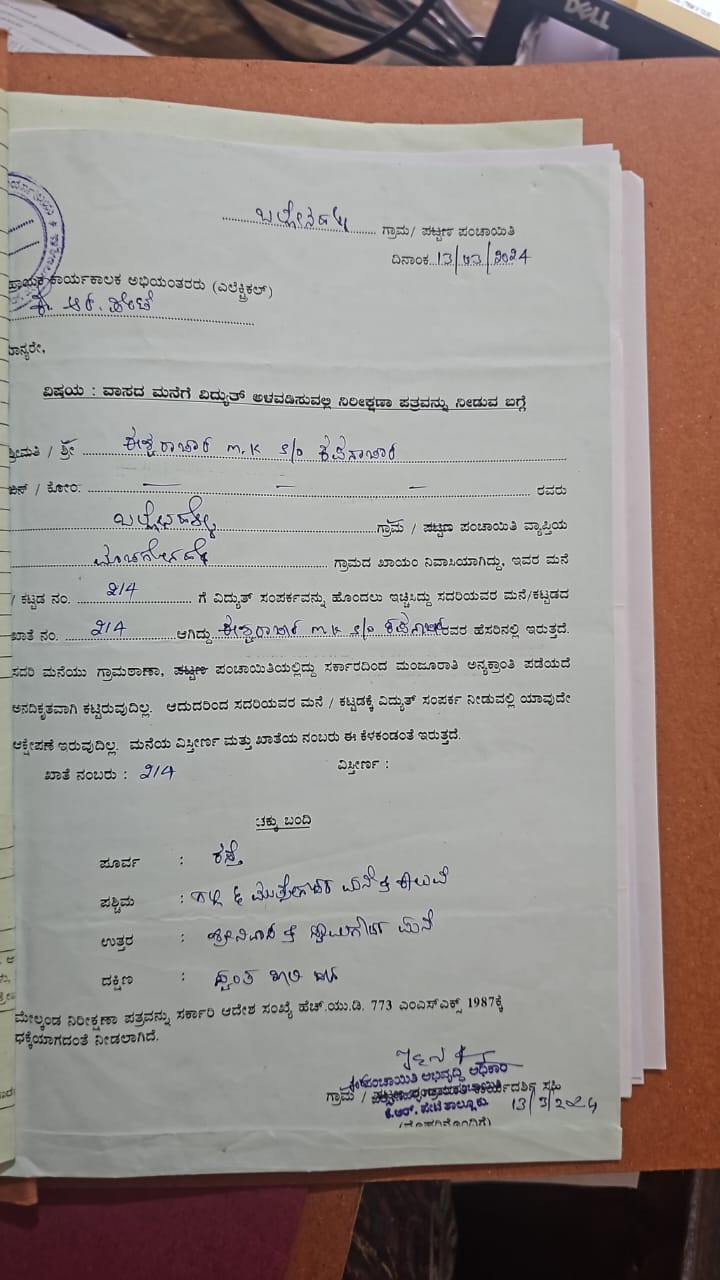 DELL
ಬಲ್ಲೇನಹಳ್ಳಿ ಗ್ರಾಮ/ ಪಟ್ಟಣ ಪಂಚಾಯಿತಿ
ದಿನಾಂಕ 13/03/2024
ಕಾರ್ಯಕಾಲಕ ಅಭಿಯಂತರರು (ಎಲೆಕ್ಟ್ರಿಕಲ್)
ಕೆ. ಆರ್. ಪೇಟೆ
ಮಾನ್ಯರೇ,
ವಿಷಯ : ವಾಸದ ಮನೆಗೆ ವಿದ್ಯುತ್ ಅಳವಡಿಸುವಲ್ಲಿ ನಿರೀಕ್ಷಣಾ ಪತ್ರವನ್ನು ನೀಡುವ ಬಗ್ಗೆ
ಶ್ರೀಮತಿ / ಶ್ರೀ ಈಶ್ವರಾಚಾರಿ M.K S/o
ಬಿನ್ / ಕೋಂ. — — — ರವರು
ಬಲ್ಲೇನಹಳ್ಳಿ ಗ್ರಾಮ / ಪಟ್ಟಣ ಪಂಚಾಯಿತಿ ವ್ಯಾಪ್ತಿಯ
ಗ್ರಾಮದ ಖಾಯಂ ನಿವಾಸಿಯಾಗಿದ್ದು, ಇವರ ಮನೆ
/ ಕಟ್ಟಡ ನಂ. 214 ಗೆ ವಿದ್ಯುತ್ ಸಂಪರ್ಕವನ್ನು ಹೊಂದಲು ಇಚ್ಚಿಸಿದ್ದು ಸದರಿಯವರ ಮನೆ/ಕಟ್ಟಡದ
ಖಾತೆ ನಂ. 214 ಆಗಿದ್ದು ಈಶ್ವರಾಚಾರಿ M.K S/o ರವರ ಹೆಸರಿನಲ್ಲಿ ಇರುತ್ತದೆ.
ಸದರಿ ಮನೆಯು ಗ್ರಾಮಠಾಣಾ, ಪಟ್ಟಣ ಪಂಚಾಯಿತಿಯಲ್ಲಿದ್ದು ಸರ್ಕಾರದಿಂದ ಮಂಜೂರಾತಿ ಅನ್ಯಕ್ರಾಂತಿ ಪಡೆಯದೆ
ಅನದಿಕೃತವಾಗಿ ಕಟ್ಟಿರುವುದಿಲ್ಲ. ಆದುದರಿಂದ ಸದರಿಯವರ ಮನೆ / ಕಟ್ಟಡಕ್ಕೆ ವಿದ್ಯುತ್ ಸಂಪರ್ಕ ನೀಡುವಲ್ಲಿ ಯಾವುದೇ
ಆಕ್ಷೇಪಣೆ ಇರುವುದಿಲ್ಲ. ಮನೆಯ ವಿಸ್ತೀರ್ಣ ಮತ್ತು ಖಾತೆಯ ನಂಬರು ಈ ಕೆಳಕಂಡಂತೆ ಇರುತ್ತದೆ.
ಖಾತೆ ನಂಬರು : 214 ವಿಸ್ತೀರ್ಣ :
ಚಕ್ಕು ಬಂದಿ
ಪೂರ್ವ : ರಸ್ತೆ
ಪಶ್ಚಿಮ : ಮನೆ
ಉತ್ತರ : ಮನೆ
ದಕ್ಷಿಣ : ಸ್ವಂತ ಖಾಲಿ ಜಾಗ
ಮೇಲ್ಕಂಡ ನಿರೀಕ್ಷಣಾ ಪತ್ರವನ್ನು ಸರ್ಕಾರಿ ಆದೇಶ ಸಂಖ್ಯೆ ಹೆಚ್.ಯು.ಡಿ. 773 ಎಂಎಸ್ಎಕ್ಸ್ 1987ಕ್ಕೆ
ಧಕ್ಕೆಯಾಗದಂತೆ ನೀಡಲಾಗಿದೆ.
ಪಂಚಾಯಿತಿ ಅಭಿವೃದ್ಧಿ ಅಧಿಕಾರಿ
ಗ್ರಾಮ / ಕಾರ್ಯದರ್ಶಿ ಸಹಿ
ಕೆ.ಆರ್. ಪೇಟೆ ತಾಲ್ಲೂಕು 13/3/2024
(ಮೊಹರಿನೊಂದಿಗೆ)